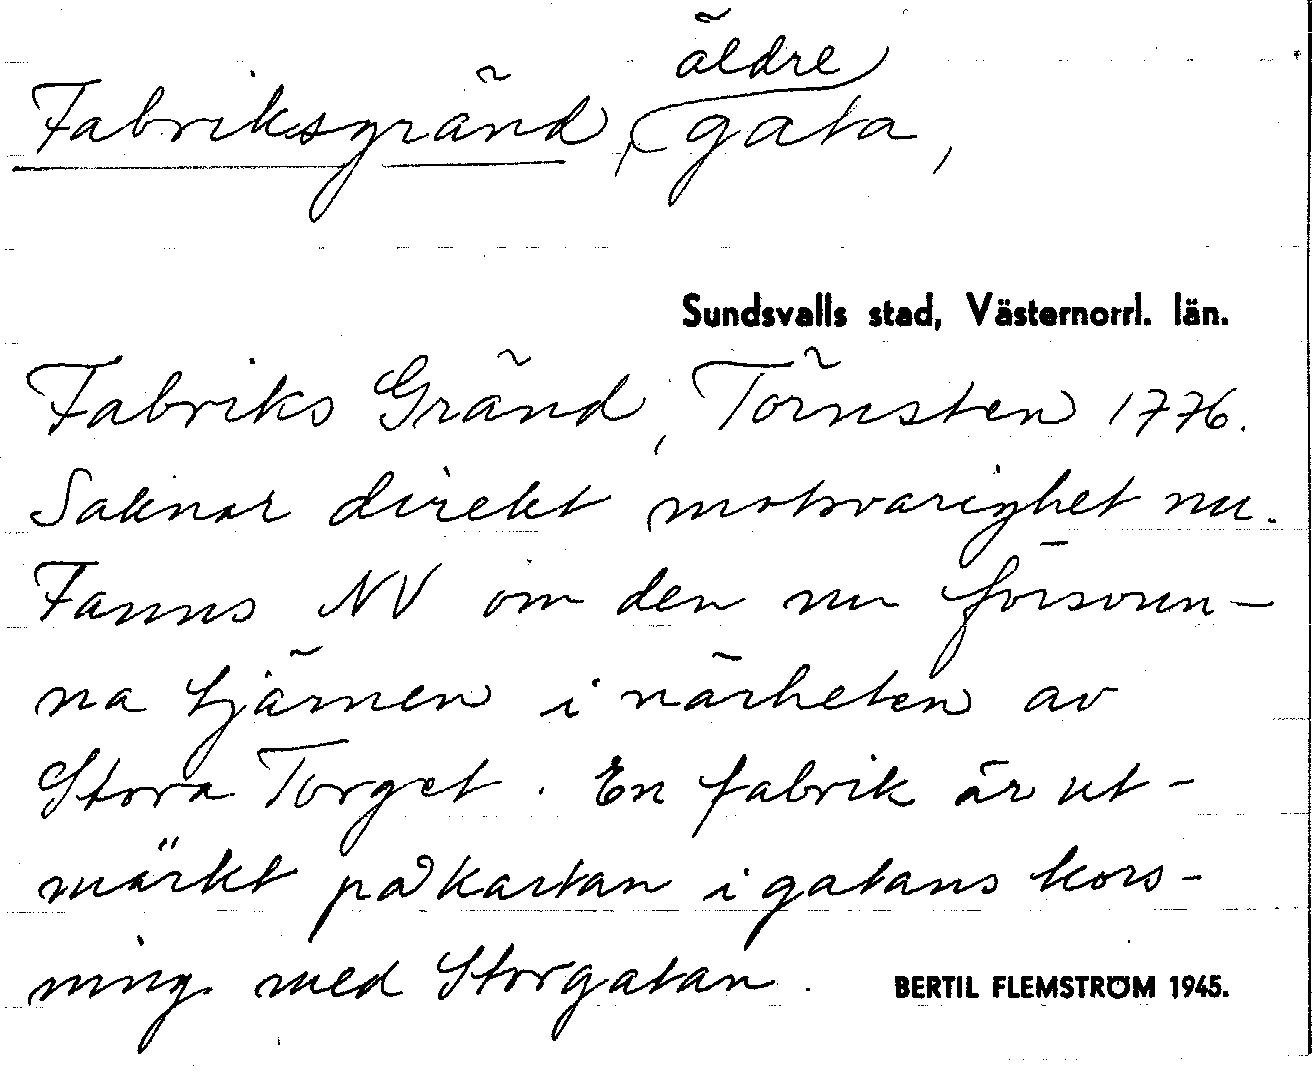 Fabriksgränd, äldre gata,
Sundsvalls stad, Västernorrl. län.
Fabriks Gränd, Törnsten 1776.
Saknar direkt motsvarighet nu.
Fanns NV om den nu försvun-
na tjärnen i närheten av
Stora Torget. En fabrik är ut-
märkt på kartan i gatans kors-
ning med Storgatan.
BERTIL FLEMSTRÖM 1945.